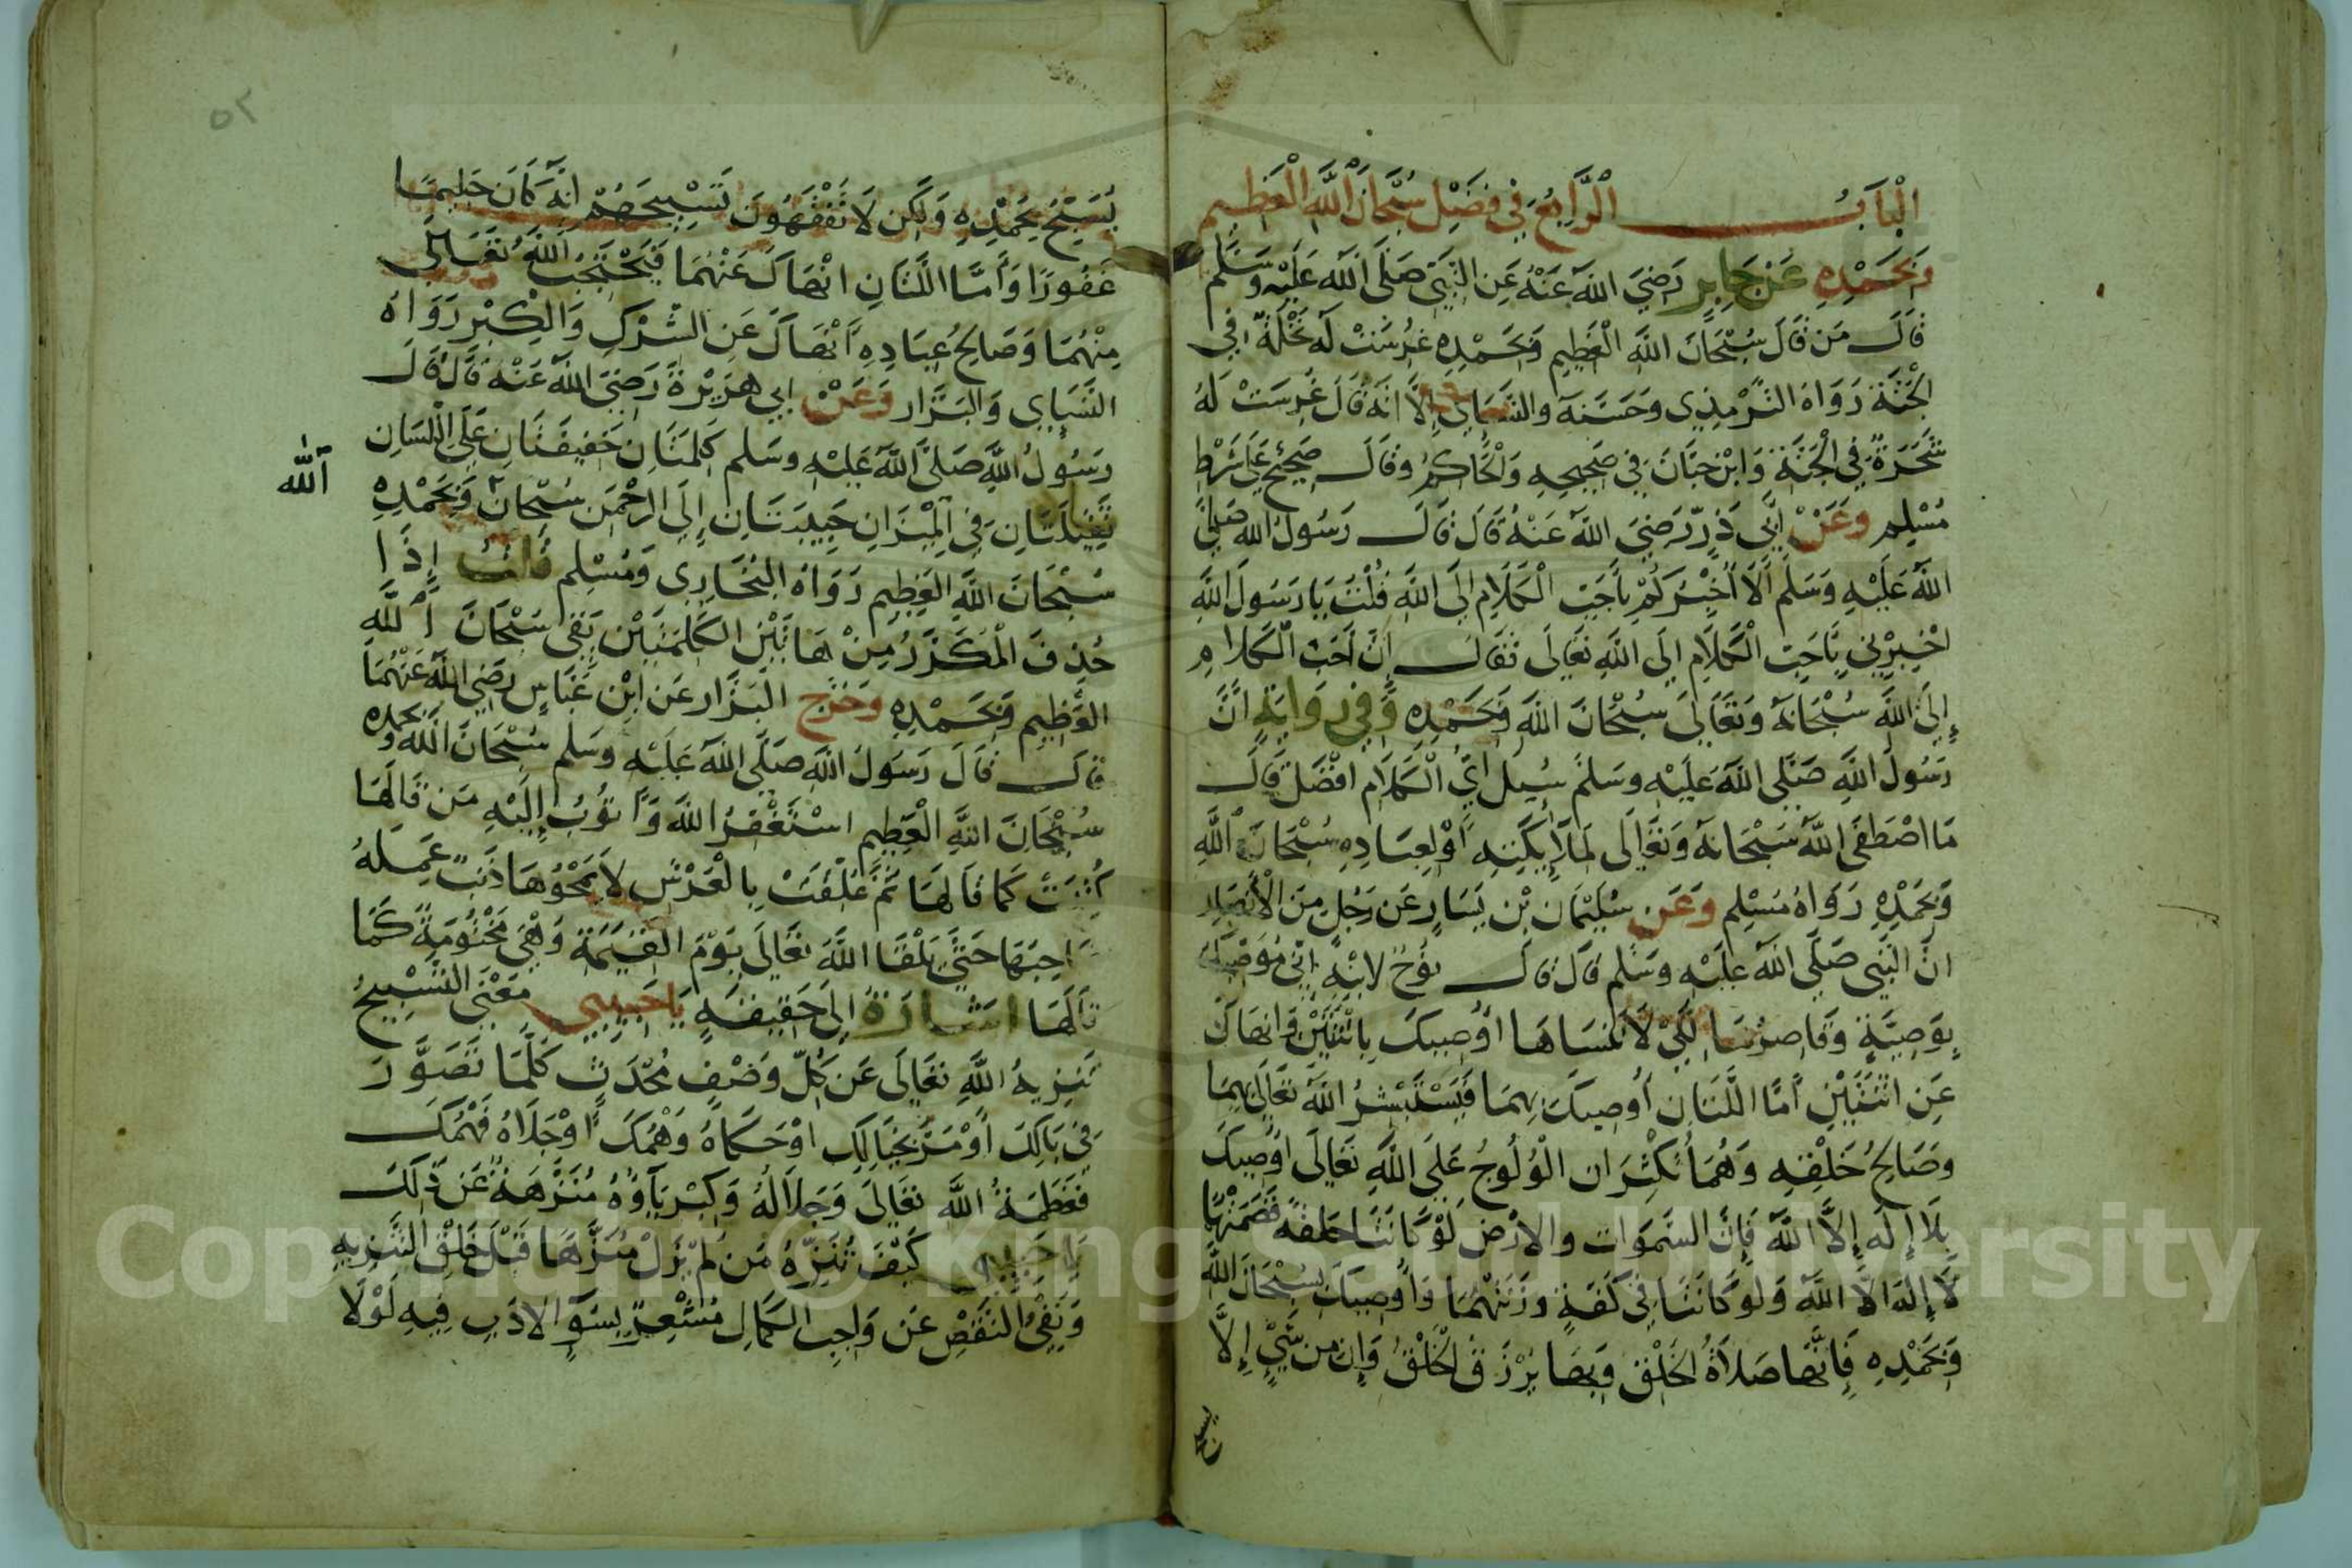 الْبَابُ الرَّابِعُ فِي فَضْلِ سُبْحَانَ اللَّهِ الْعَظِيمِ
وَبِحَمْدِهِ عَنْ جَابِرٍ رَضِيَ اللَّهُ عَنْهُ عَنِ النَّبِيِّ صَلَّى اللَّهُ عَلَيْهِ وَسَلَّم
قَالَ مَن قَالَ سُبْحَانَ اللَّهِ الْعَظِيمِ وَبِحَمْدِهِ غُرِسَتْ لَهُ نَخْلَةٌ فِي
الْجَنَّةِ رَوَاهُ التِّرْمِذِي وَحَسَّنَهُ والنَّسَايِ إِلَّا انَّهُ قَالَ غُرِسَتْ لَهُ
شَجَرَةٌ فِي الْجَنَّةِ وَابْن حِبَّانَ فِي صَحِيحِهِ وَالْحَاكِمُ وقَالَ صَحِيحٌ عَلَى شَرْطِ
مُسْلِم وَعَنْ أَبِي ذَرٍّ رَضِيَ اللَّهُ عَنْهُ قَالَ قَالَ رَسُولُ اللهِ صَلَّى
اللَّهُ عَلَيْهِ وَسَلَّم أَلَا أُخْبِرُكُمْ بِأَحَبِّ الْكَلَامِ إِلَى اللَّهِ قُلْتُ يَا رَسُولَ اللَّهِ
اخْبِرْنِي بِأَحَبِّ الْكَلَامِ إِلَى اللَّهِ تَعَالَى فَقَالَ إِنَّ أَحَبَّ الْكَلامِ
إِلَى اللَّهِ سُبْحَانَهُ وَتَعَالَى سُبْحَانَ اللَّهِ وَبِحَمْدِهِ وَفِي رِوَايَةٍ انَّ
رَسُولَ اللَّهِ صَلَّى اللَّهُ عَلَيْهِ وسَلَّمَ سُيِلَ أَيُّ الْكَلَامِ افْضَلُ قَالَ
مَا اصْطَفَى اللَّهُ سُبْحَانَهُ وَتَعَالَى لِمَلَائِكَتِهِ أَوْ لِعِبَادِهِ سُبْحَانَ اللَّهِ
وَبِحَمْدِهِ رَوَاهُ مُسْلِم وَعَن سُلَيْمَان بْن يَسَارٍ عَن رَجُلٍ مِنَ الْأَنْصَارِ
انَّ النَّبِي صَلَّى اللَّهُ عَلَيْهِ وسَلَّم قَالَ قَالَ نُوْحٌ لابْنِهِ إِنِّي مُوَصِّيكَ
بِوَصِيَّةٍ وَقَاصِرُهَا لِكَيْ لَا تَنْسَاهَا أُوصِيكَ بِاثْنَتَيْنِ وَانْهَاكَ
عَنِ اثْنَتَيْنِ أَمَّا اللَّتَانِ أُوصِيكَ بِهِمَا فَيَسْتَبْشِرُ اللَّهُ تَعَالَى بِهِمَا
وصَالِحُ خَلْقِهِ وَهُمَا يُكْثِرَانِ الْوُلُوجَ عَلَى اللَّهِ تَعَالَى أُوصِيكَ
بِلَا إِلَه إِلَّا اللَّهُ فَإِنَّ السَّمَوَاتِ والارْضَ لَوْ كَانَتَا حَلقَةً قَصَمَتْهُا
لَا إِلَهَ الَّا اللَّهُ وَلَوْ كَانَتَا فِي كَفَّةٍ وزَنَتْهُمَا وَأُوصِيكَ بِسُبْحَانَ اللَّهِ
وَبِحَمْدِهِ فَإِنَّهَا صَلَاةُ الْخَلْقِ وَبِهَا يُرْزَقُ الْخَلْقُ وَإِن مِن شَيْءٍ إِلَّا
يسبح
٥٢
يُسَبِّحُ بِحَمْدِهِ وَلَكِن لَا تَفْقَهُونَ تَسْبِيحَهُمْ انَّهُ كَانَ حَلِيمًا
غَفُورًا وَأَمَّا اللَّتَانِ انْهَاكَ عَنْهُمَا فَيَحْتَجِبُ اللَّهُ تَعَالَى
مِنْهُمَا وَصَالِحُ عِبَادِهِ أَنْهَاكَ عَنِ الشِّرْكِ وَالْكِبْرِ رَوَاهُ
النَّسَايِي وَالبَزَّار وَعَنْ ابِي هُرَيْرَةَ رَضِيَ اللَّهُ عَنْهُ قَالَ قَالَ
رَسُولُ اللَّهِ صَلَّى اللَّهُ عَلَيْهِ وسَلم كَلِمَتَانِ خَفِيفَتَانِ عَلَى اللِّسَانِ
ثَقِيلَتَانِ فِي الْمِيزَانِ حَبِيبَتَانِ إِلَى الرَّحْمَنِ سُبْحَانَ وَبِحَمْدِهِ
اللَّه
سُبْحَانَ اللَّهِ الْعَظِيمِ رَوَاهُ الْبُخَارِي وَمُسْلِم قُلْتُ إِذَا
حُذِفَ الْمُكَرَّرُ مِنْ هَاتَيْنِ الْكَلِمَتَيْنِ بَقِيَ سُبْحَانَ اللَّهِ
الْعَظِيمِ وَبِحَمْدِهِ وَخَرَّجَ الْبَزَّار عَن ابْن عَبَّاسٍ رَضِيَ اللَّهُ عَنْهُمَا
قَالَ قَالَ رَسُولُ اللَّهِ صَلَّى اللَّهُ عَلَيْهِ وسَلم سُبْحَانَ اللَّهِ وَبِحَمْدِهِ
سُبْحَانَ اللَّهِ الْعَظِيمِ اسْتَغْفِرُ اللَّهَ وَأَتُوبُ إِلَيْهِ مَن قَالَهَا
كُتِبَتْ كَمَا قَالَهَا ثُمَّ عُلِّقَتْ بِالْعَرْشِ لَا يَمْحُوهَا ذَنْبٌ عَمِلَهُ
صَاحِبُهَا حَتَّى يَلْقَا اللَّهَ تَعَالَى يَوْمَ الْقِيَمَةِ وَهْيَ مَخْتُومَةٌ كَمَا
قَالَهَا اشَارَةٌ إِلَى حَقِيقَةٍ يَا حَبِيبِي مَعْنَى التَّسْبِيحُ
تَنْزِيهُ اللَّهِ تَعَالَى عَن كُلِّ وَصْفٍ مُحْدَثٍ كُلَّمَا تَصَوَّرَ
فِي بَالِكَ أَوْ مَرَّ بِخَيَالِكَ اوْ حَكَاهُ وَهْمُكَ أَوْ جَلَاهُ فَهْمُكَ
فَعَظَمَةُ اللَّهِ تَعَالَى وَجَلَالُهُ وَكِبْرِيَآؤُهُ مُنَزَّهَةٌ عَن ذَلِكَ
يَا حَبِيبِي كَيْفَ تُنَزِّهُ مَن لَمْ يَزَلْ مُنَزَّهَا قَبْلَ خَلْقِ التَّنْزِيهِ
وَنَفْيُ النَّقْصِ عَن وَاجِبِ الْكَمَالِ مُشْعِرٌ بِسُوءِ الادَبِ فِيهِ لَوْلَا
Copyright © King Saud University